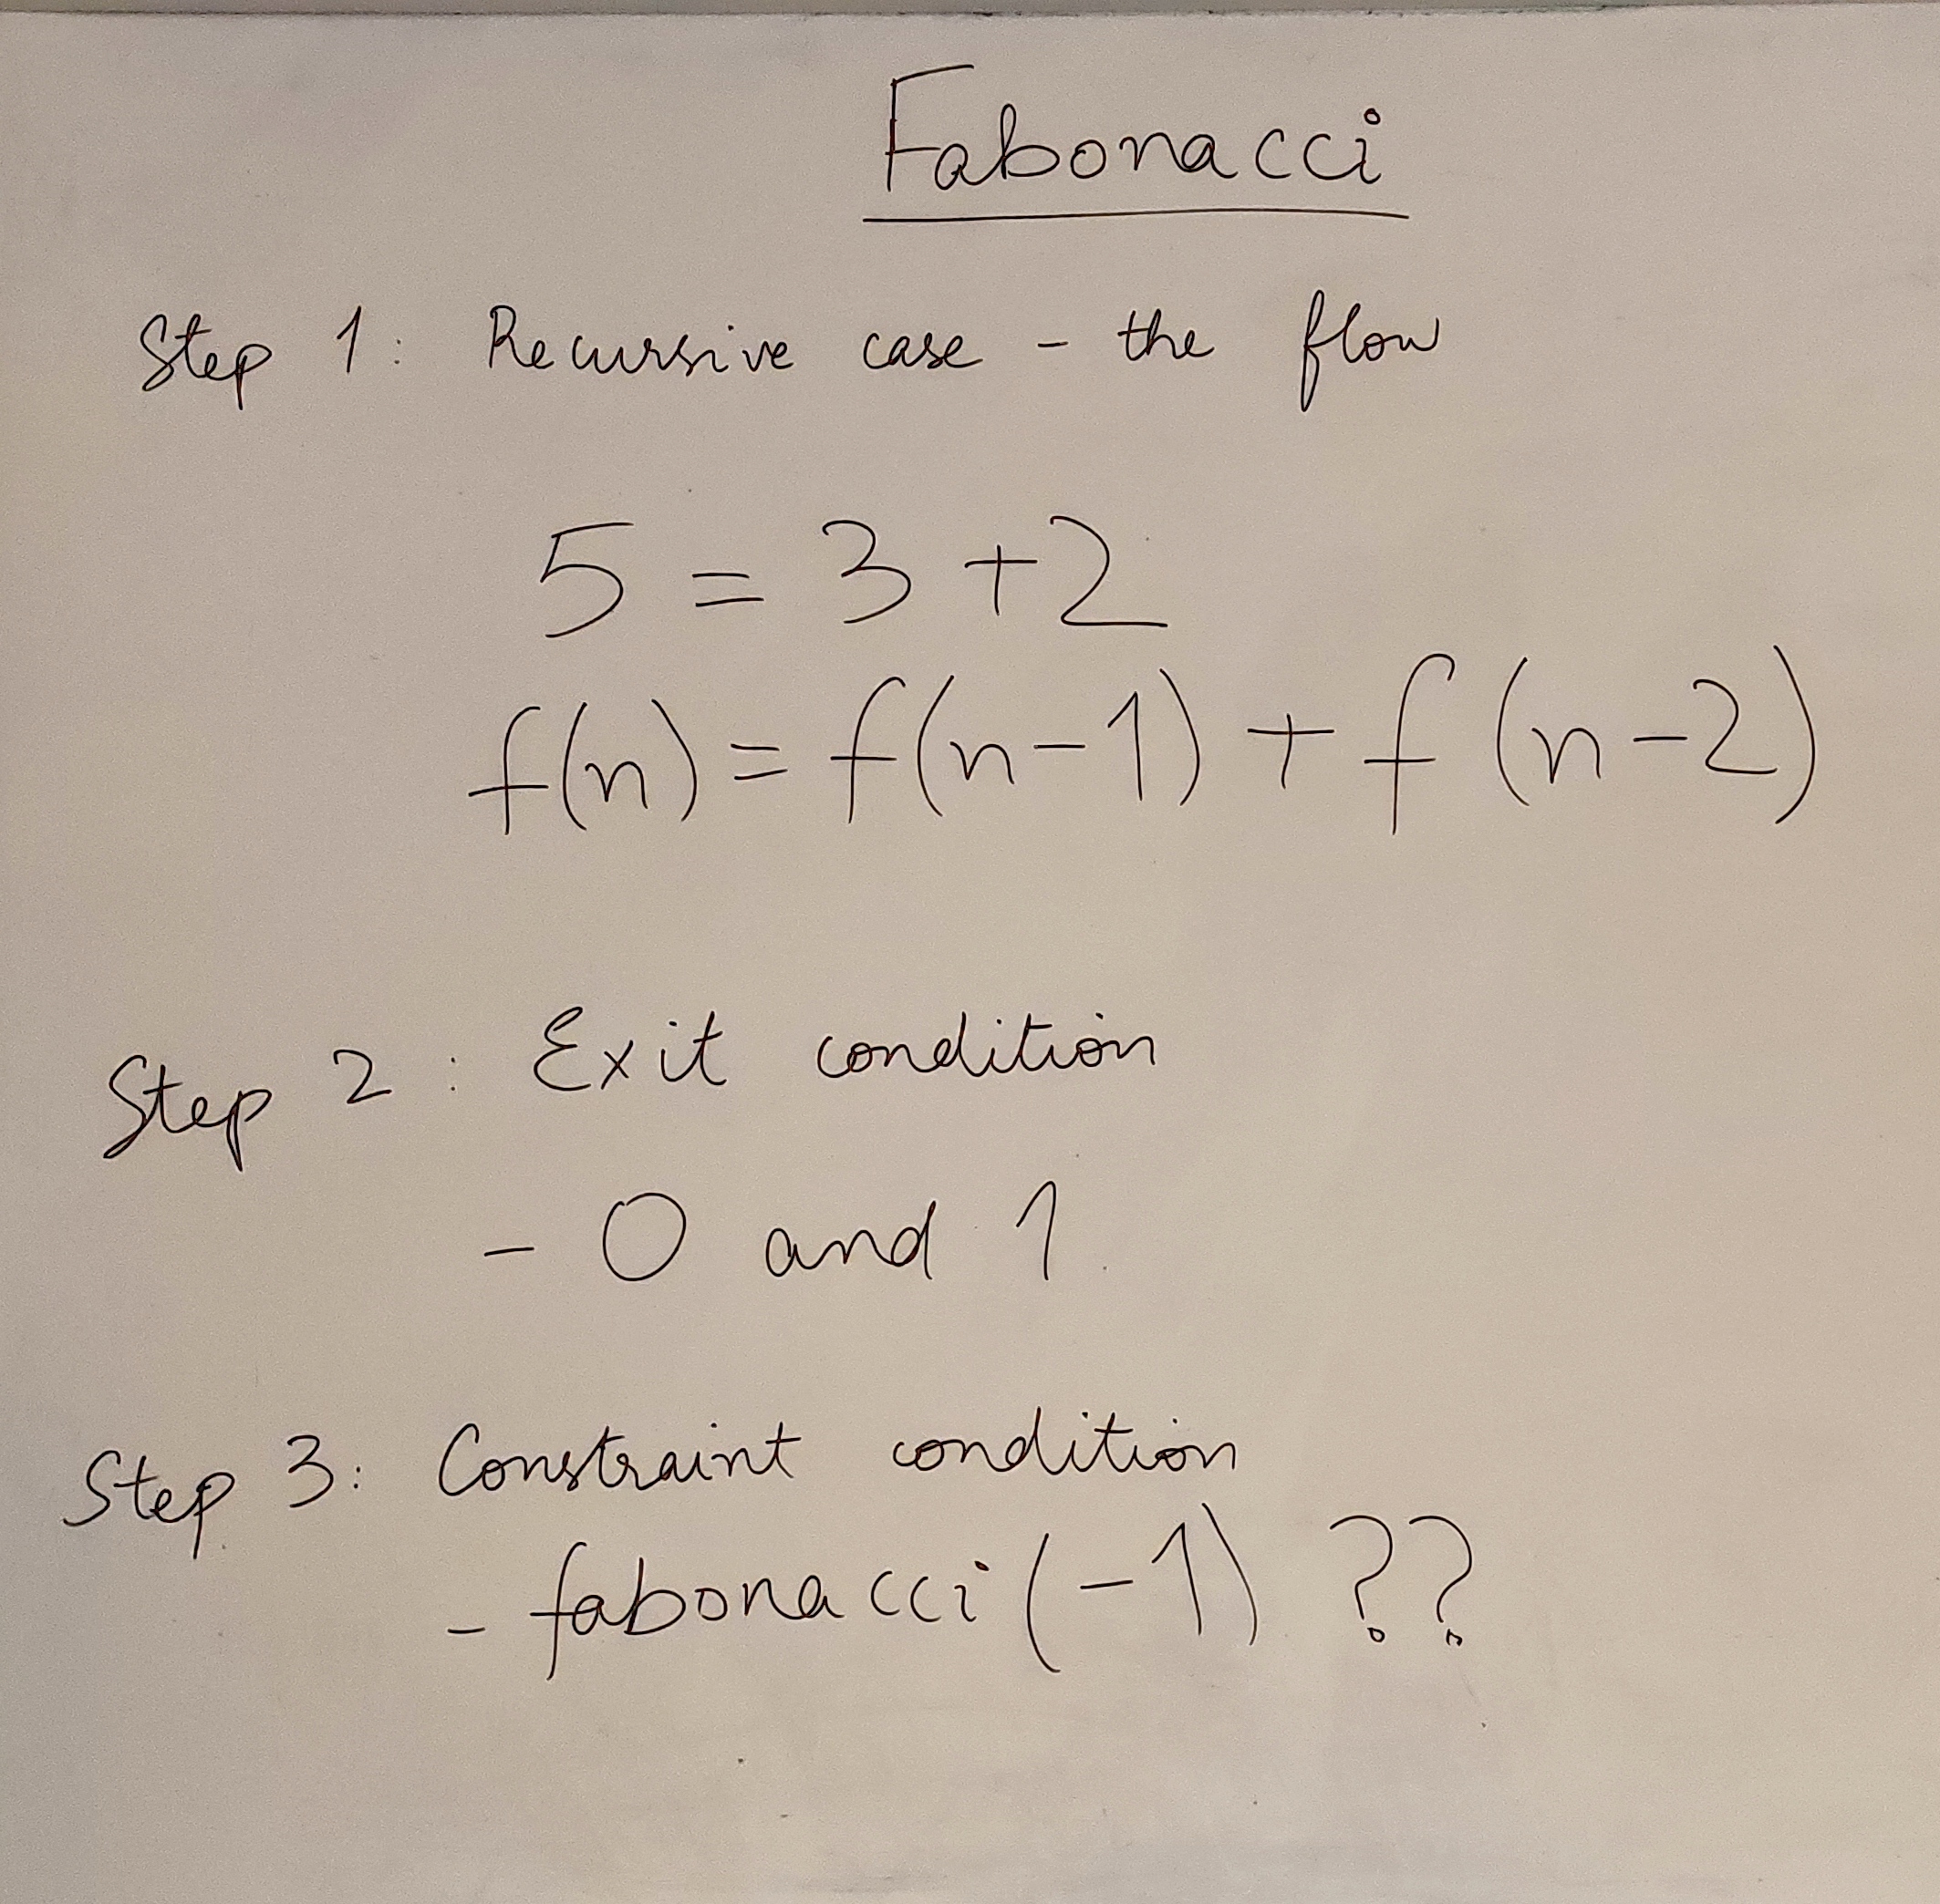 Fabonacci
Step 1: Recursive case - the flow
5 = 3 + 2
f(n) = f(n-1) + f(n-2)
Step 2: Exit condition
- 0 and 1
Step 3: Constraint condition
- fabonacci(-1) ??